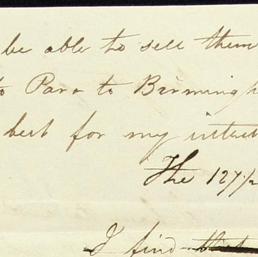 be able to sell them
to Para to Birmingh
best for my interest
The 127 1/2
I find that